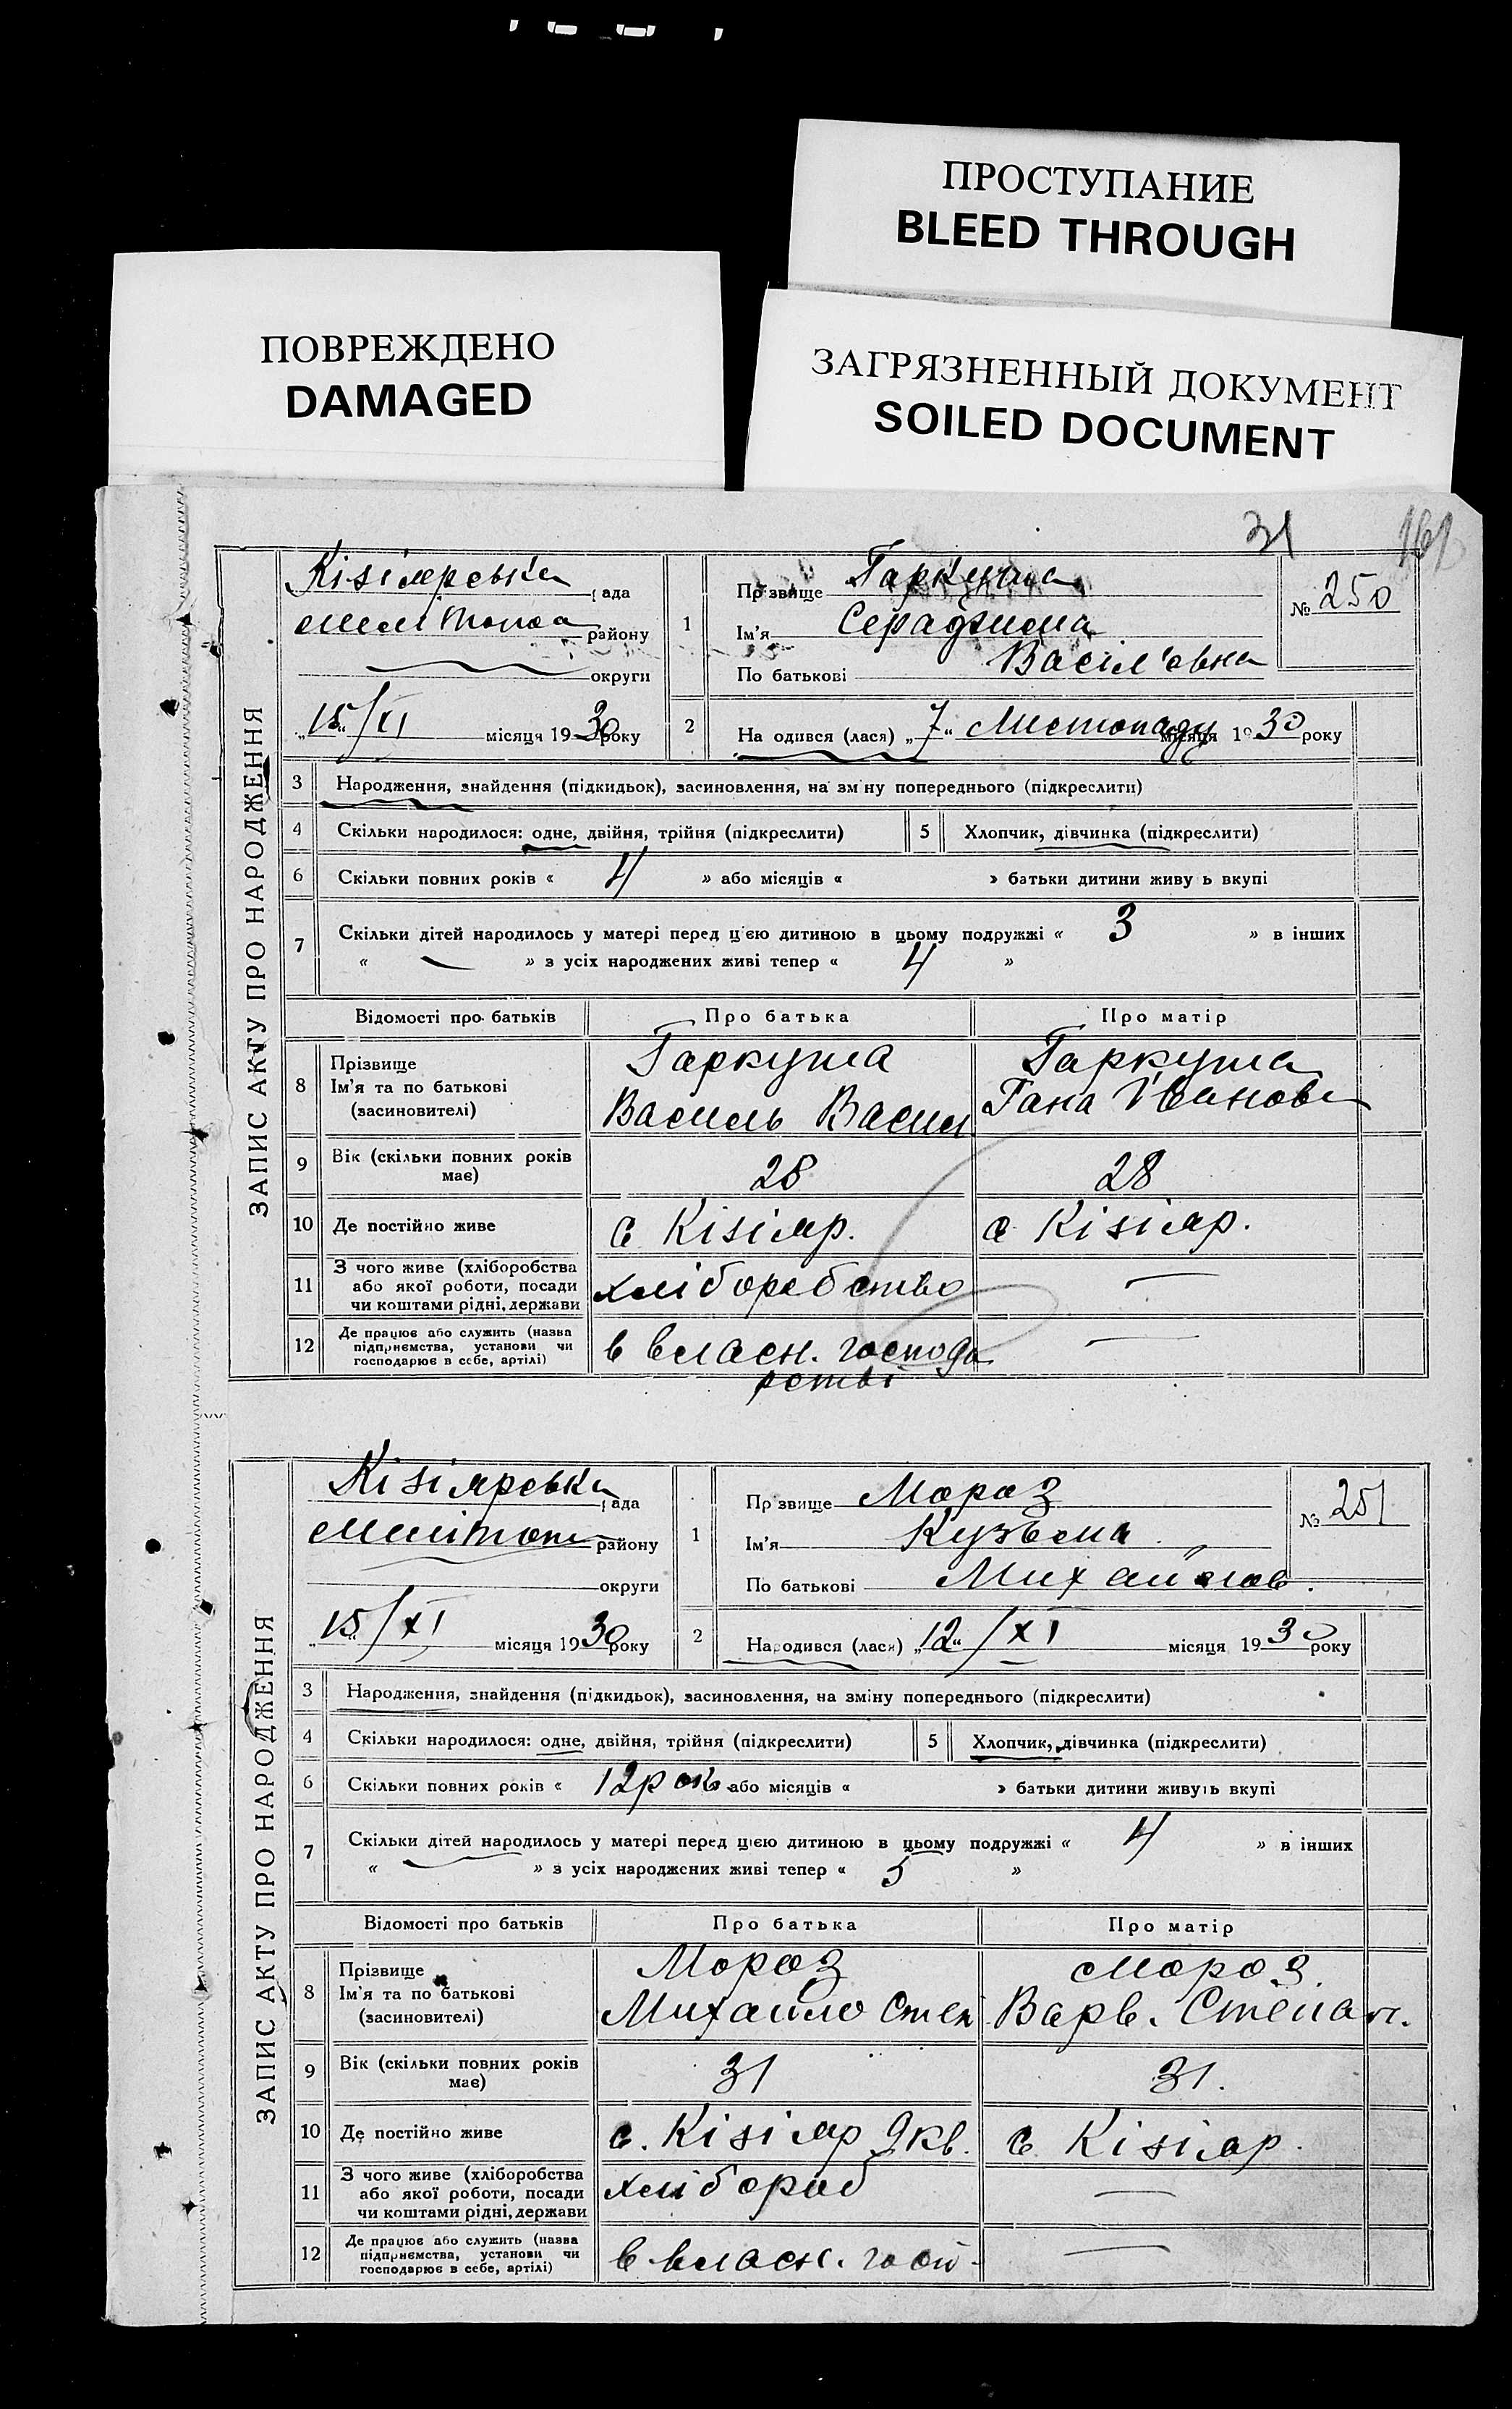 ПРОСТУПАНИЕ
BLEED THROUGH
ПОВРЕЖДЕНО
DAMAGED
ЗАГРЯЗНЕННЫЙ ДОКУМЕНТ
SOILED DOCUMENT
31 161
ЗАПИС АКТУ ПРО НАРОДЖЕННЯ
Кізіярська ада
району
округи
„15“/XI місяця 1930 року
1 Прізвище Гаркуша
Ім'я
По батькові Васіл'євна
№ 250
2 На одився (лася) „7“ Листопаду місяця 1930 року
3 Народження, знайдення (підкидьок), засиновлення, на зміну попереднього (підкреслити)
4 Скільки народилося: одне, двійня, трійня (підкреслити) 5 Хлопчик, дівчинка (підкреслити)
6 Скільки повних років « 4 » або місяців « » батьки дитини живу ь вкупі
7 Скільки дітей народилось у матері перед цією дитиною в цьому подружжі « 3 » в інших
« — » з усіх народжених живі тепер « 4 »
Відомості про батьків Про батька Про матір
8 Прізвище
Ім'я та по батькові
(засиновителі)
Гаркуша
Василь Васил
Гаркуша
Гана Іванов
9 Вік (скільки повних років
має)
28 28
10 Де постійно живе с Кізіяр. с Кізіяр.
11 З чого живе (хліборобства
або якої роботи, посади
чи коштами рідні, держави
хліборобство —
12 Де працює або служить (назва
підприємства, установи чи
господарює в себе, артілі)
в власн. господа
рстві
—
ЗАПИС АКТУ ПРО НАРОДЖЕННЯ
Кізіярська ада
Мелітоп району
округи
„15“/XI місяця 1930 року
1 Прізвище Мороз
Ім'я Кузьма
По батькові Михайлов.
№ 251
2 Народився (лася) „12“/XI місяця 1930 року
3 Народження, знайдення (підкидьок), засиновлення, на зміну попереднього (підкреслити)
4 Скільки народилося: одне, двійня, трійня (підкреслити) 5 Хлопчик, дівчинка (підкреслити)
6 Скільки повних років « 12 рок або місяців « » батьки дитини живуть вкупі
7 Скільки дітей народилось у матері перед цією дитиною в цьому подружжі « 4 » в інших
« — » з усіх народжених живі тепер « 5 »
Відомості про батьків Про батька Про матір
8 Прізвище
Ім'я та по батькові
(засиновителі)
Мороз
Михайло Степ
Мороз
Варв. Степан.
9 Вік (скільки повних років
має)
31 31.
10 Де постійно живе с. Кізіяр 9 кв. с Кізіяр.
11 З чого живе (хліборобства
або якої роботи, посади
чи коштами рідні, держави
хлібороб —
12 Де працює або служить (назва
підприємства, установи чи
господарює в себе, артілі)
в власн. —